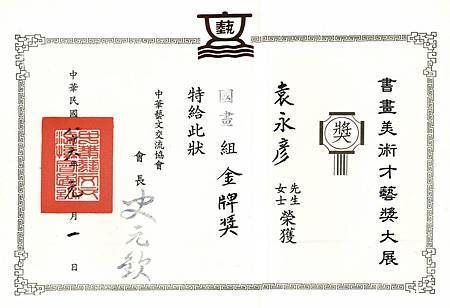 藝
書畫美術才藝獎大展
獎
袁永彥 先生 女士 榮獲
國畫組金牌獎
特給此狀
中華藝文交流協會
會長 史元欽
中華民國八十六年元月一日